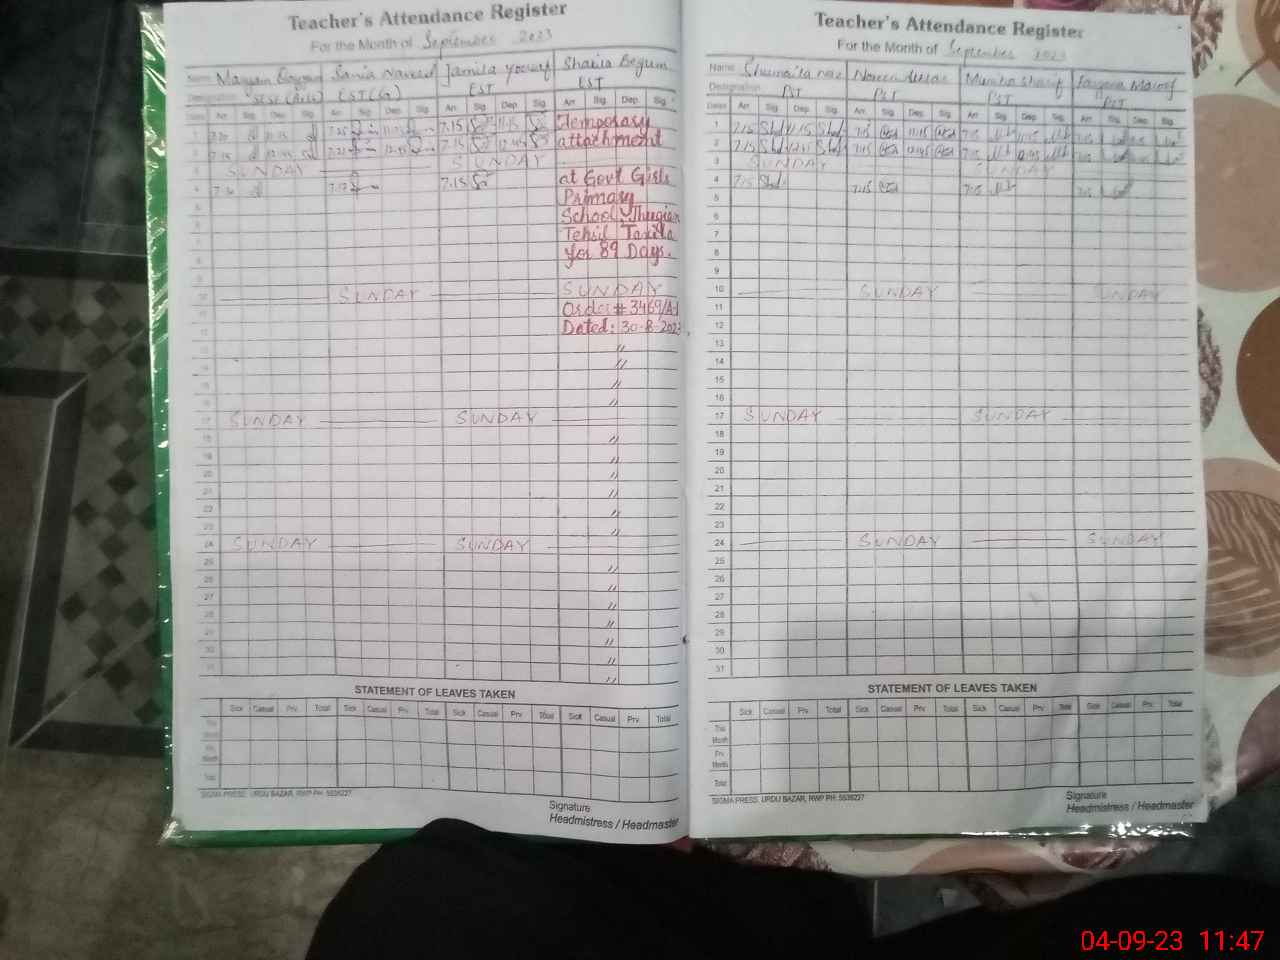 Teacher's Attendance Register
For the Month of September 2023
Name Maryam Sania Naveed Jamila Yousaf Shakila Begum
Designation EST EST
Dates Arr. Sig. Dep. Sig. Arr. Sig. Dep. Sig. Arr. Sig. Dep. Sig. Arr. Sig. Dep. Sig.
1 7.15 11.15 Temporary
2 7.15 12.45 7.15 12.45 attachment
3 SUNDAY SUNDAY
4 7.15 at Govt Girls
5 Primary
6 School
7 Tehsil Taxila
8 for 89 Days.
9
10 SUNDAY SUNDAY
11 Order # 3469/A-1
12 Dated: 30-8-2023
13 "
14 "
15 "
16 "
17 SUNDAY SUNDAY
18 "
19 "
20 "
21 "
22 "
23 "
24 SUNDAY SUNDAY
25 "
26 "
27 "
28 "
29 "
30 "
31 "
STATEMENT OF LEAVES TAKEN
Sick Casual Prv. Total Sick Casual Prv. Total Sick Casual Prv. Total Sick Casual Prv. Total
This Month
Prv. Month
Total
SIGMA PRESS, URDU BAZAR, RWP PH: 5536227
Signature
Headmistress / Headmaster
Teacher's Attendance Register
For the Month of September 2023
Name Shumaila Naz Noreen
Designation PST PST PST PST
Dates Arr. Sig. Dep. Sig. Arr. Sig. Dep. Sig. Arr. Sig. Dep. Sig. Arr. Sig. Dep. Sig.
1 7.15 11.15 7.15 11.15 7.15
2 7.15 12.45 7.15 12.45 7.15 12.45
3 SUNDAY SUNDAY
4 7.15 7.15 7.15 7.15
5
6
7
8
9
10 SUNDAY SUNDAY
11
12
13
14
15
16
17 SUNDAY SUNDAY
18
19
20
21
22
23
24 SUNDAY SUNDAY
25
26
27
28
29
30
31
STATEMENT OF LEAVES TAKEN
Sick Casual Prv. Total Sick Casual Prv. Total Sick Casual Prv. Total Sick Casual Prv. Total
This Month
Prv. Month
Total
SIGMA PRESS, URDU BAZAR, RWP PH: 5536227
Signature
Headmistress / Headmaster
04-09-23 11:47